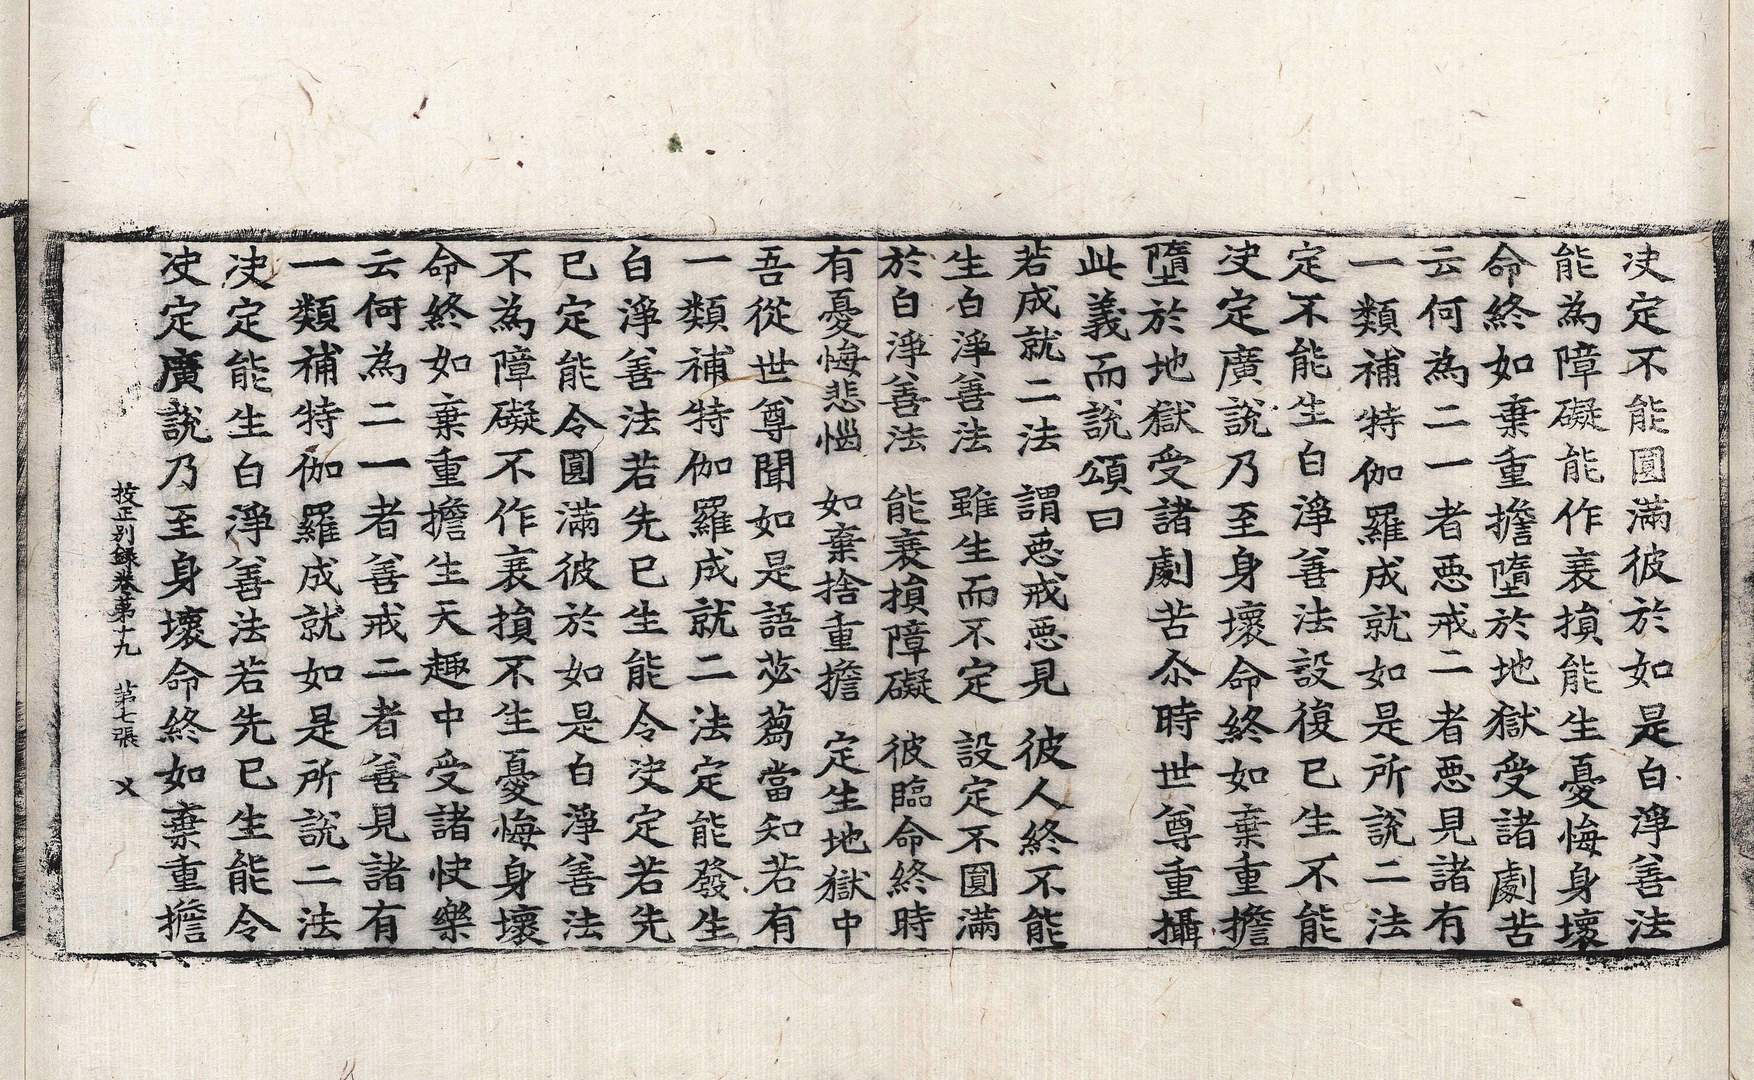 决定不能圓滿彼於如是白淨善法
能為障礙能作衰損能生憂悔身壞
命終如棄重擔墮於地獄受諸劇苦
云何為二一者惡戒二者惡見諸有
一類補特伽羅成就如是所說二法
定不能生白淨善法設復已生不能
决定廣說乃至身壞命終如棄重擔
墮於地獄受諸劇苦尒時世尊重攝
此義而說頌曰
若成就二法　謂惡戒惡見　彼人終不能
生白淨善法　雖生而不定　設定不圓滿
於白淨善法　能衰損障礙　彼臨命終時
有憂悔悲惱　如棄捨重擔　定生地獄中
吾從世尊聞如是語苾蒭當知若有
一類補特伽羅成就二法定能發生
白淨善法若先已生能令决定若先
已定能令圓滿彼於如是白淨善法
不為障礙不作衰損不生憂悔身壞
命終如棄重擔生天趣中受諸快樂
云何為二一者善戒二者善見諸有
一類補特伽羅成就如是所說二法
决定能生白淨善法若先已生能令
决定廣說乃至身壞命終如棄重擔
挍正別録卷苐十九　苐七張